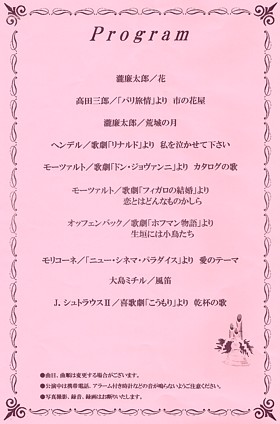 Program
瀧廉太郎／花
高田三郎／「パリ旅情」より 市の花屋
瀧廉太郎／荒城の月
ヘンデル／歌劇「リナルド」より 私を泣かせて下さい
モーツァルト／歌劇「ドン・ジョヴァンニ」より カタログの歌
モーツァルト／歌劇「フィガロの結婚」より
恋とはどんなものかしら
オッフェンバック／歌劇「ホフマン物語」より
生垣には小鳥たち
モリコーネ／「ニュー・シネマ・パラダイス」より 愛のテーマ
大島ミチル／風笛
J. シュトラウスⅡ／喜歌劇「こうもり」より 乾杯の歌
●曲目、曲順は変更する場合がございます。
●公演中は携帯電話、アラーム付き時計などの音が鳴らないようご注意ください。
●写真撮影、録音、録画はお断りいたします。